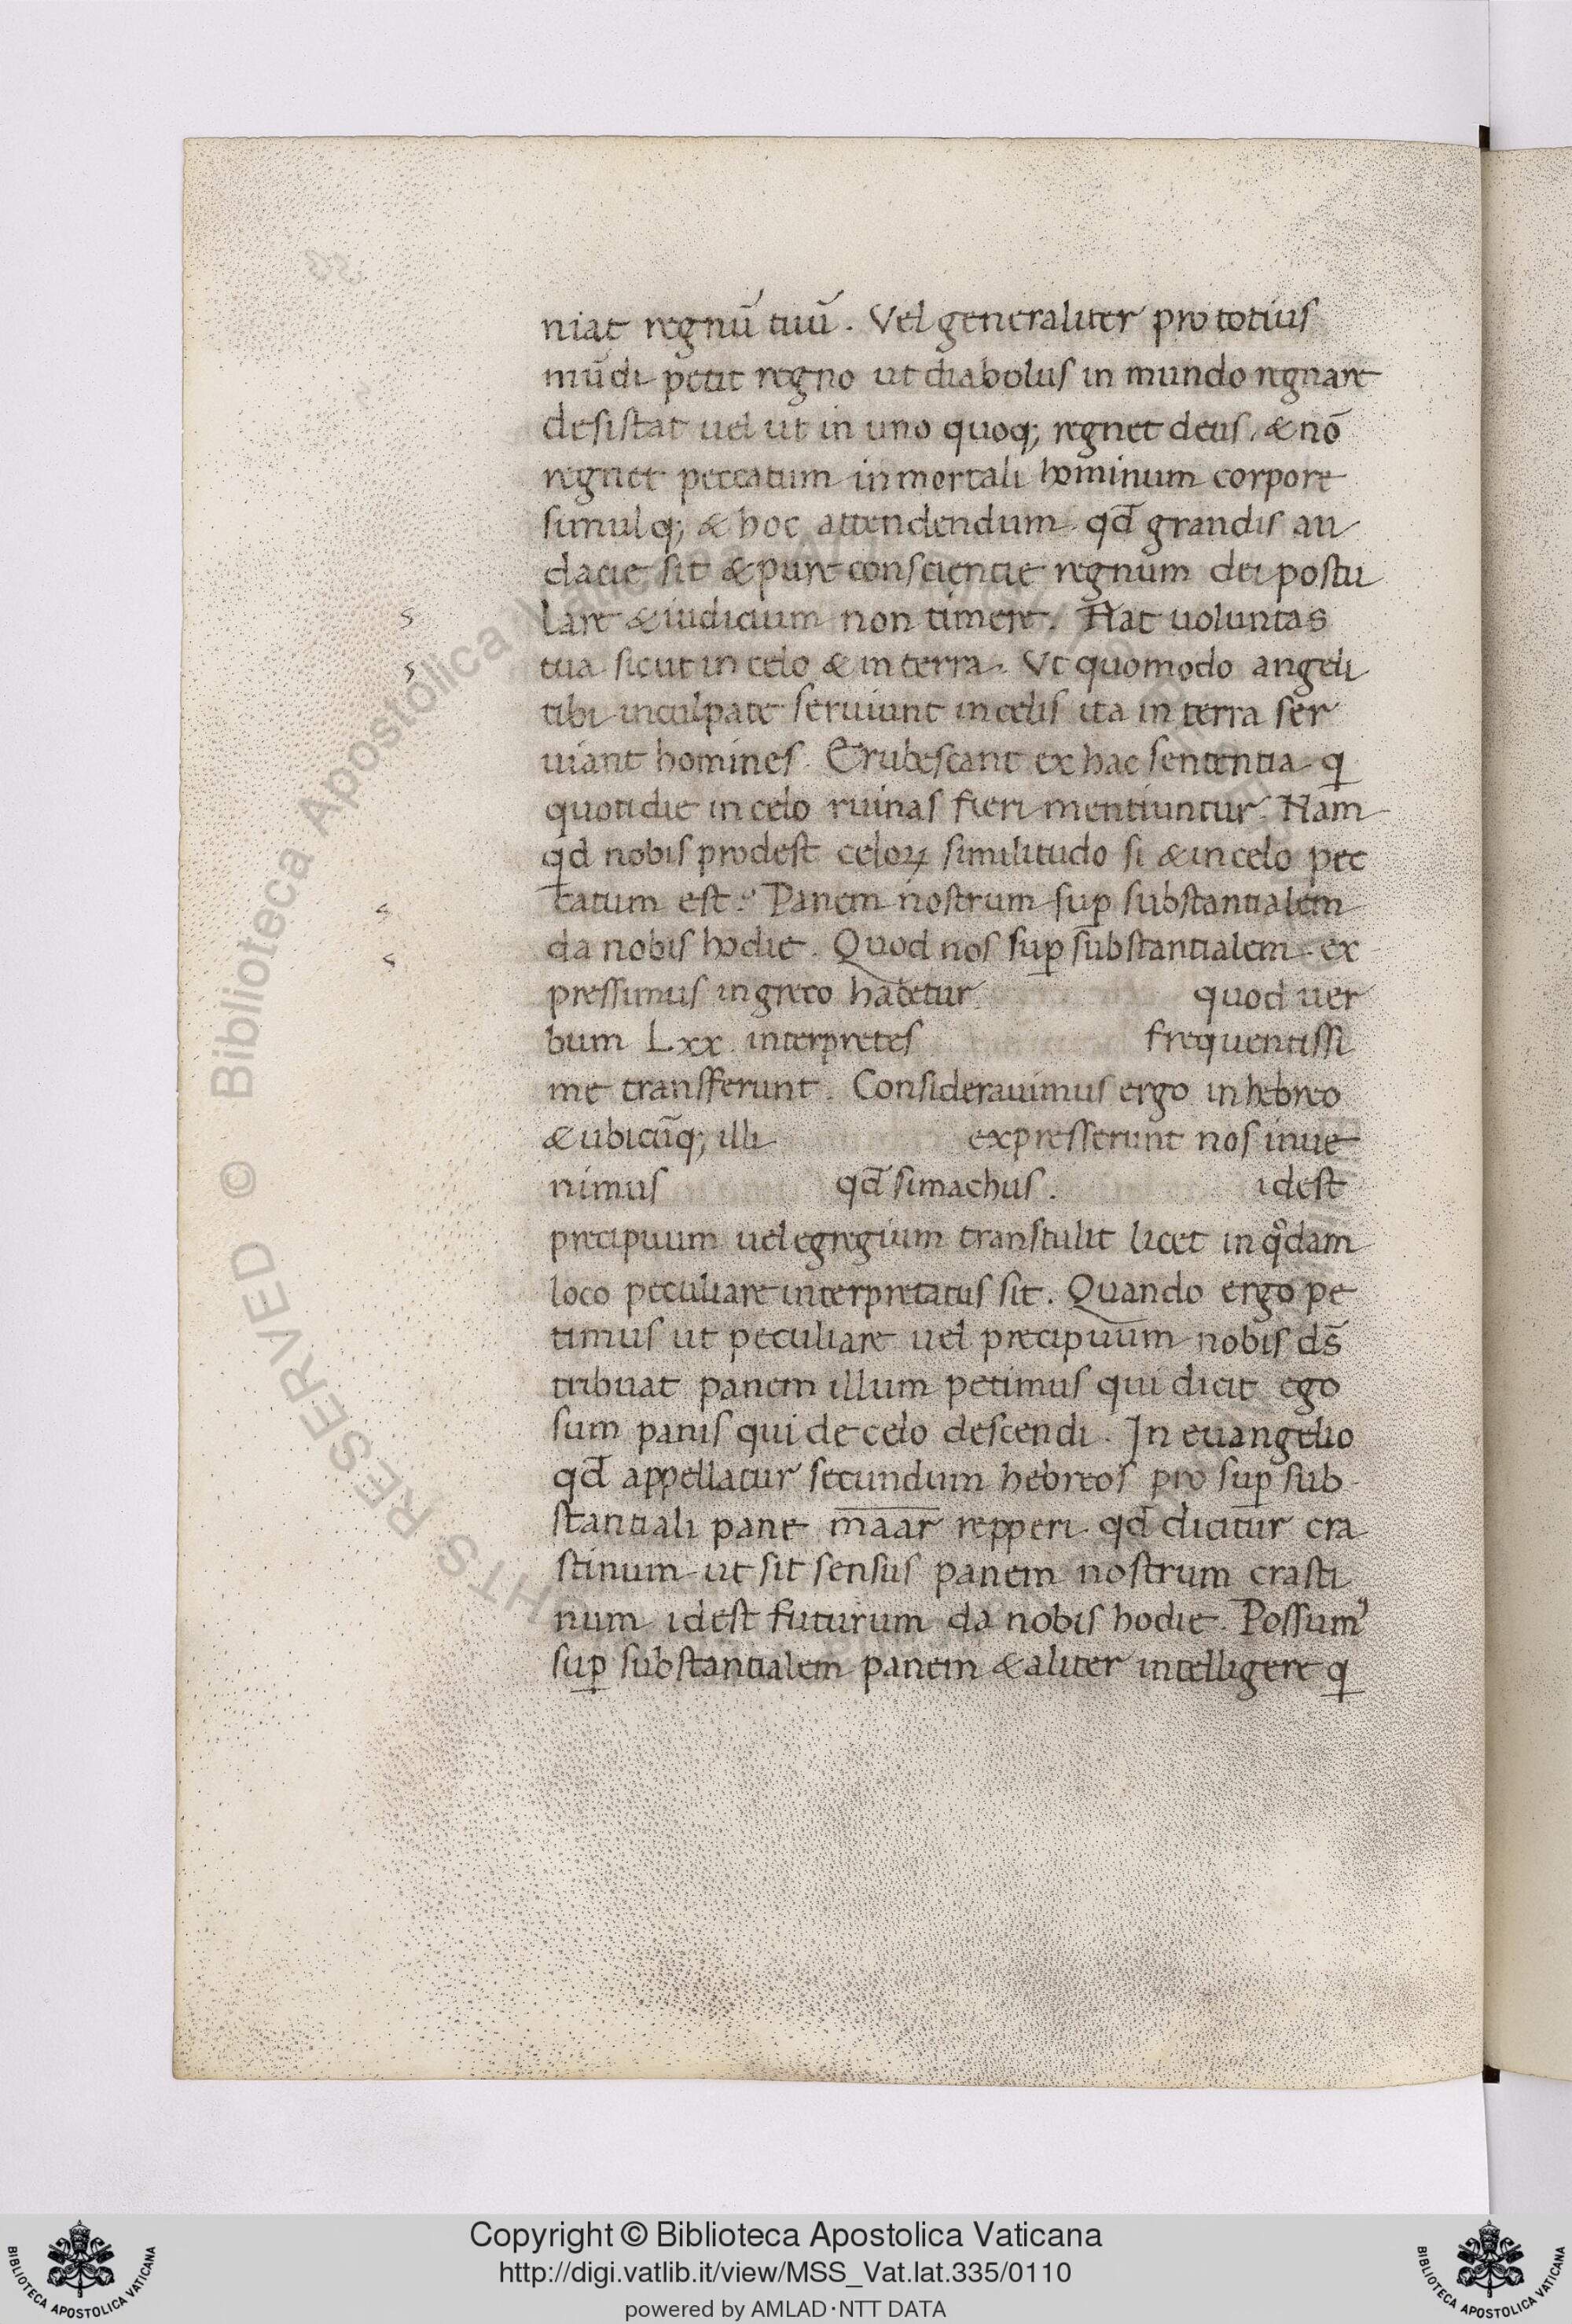 niat regnū tuū. Vel generaliter pro totius
mūdi petit regno ut diabolus in mundo regnare
desistat uel ut in uno quoq; regnet deus, & nō
regnet peccatum in mortali hominum corpore
simulq; & hoc attendendum qđ grandis au
dacie sit & pure consciencie regnum dei postu
lare & iudicium non timere. Fiat uoluntas
tua sicut in celo & in terra. Vt quomodo angeli
tibi inculpate seruiunt in celis ita in terra ser
uiant homines. Erubescant ex hac sententia ꝗ
quotidie in celo ruinas fieri mentiuntur. Nam
qd nobis prodest celoꝝ similitudo si & in celo pec
catum est? Panem nostrum suꝑ substantialem
da nobis hodie. Quod nos suꝑ substantialem ex
pressimus in greco habetur quod uer
bum Lxx interpretes frequentissi
me transferunt. Considerauimus ergo in hebreo
& ubicūq; illi expresserunt nos inue
nimus qđ simachus. idest
precipuum uel egregium transtulit licet in qͦdam
loco peculiare interpretatus sit. Quando ergo pe
timus ut peculiare uel precipuum nobis ds̄
tribuat panem illum petimus qui dicit ego
sum panis qui de celo descendi. In euangelio
qđ appellatur secundum hebreos pro suꝑ sub
stantiali pane maar repperi qđ dicitur cra
stinum ut sit sensus panem nostrum crasti
num idest futurum da nobis hodie. Possumꝰ
suꝑ substantialem panem & aliter intelligere ꝗ
Biblioteca Apostolica Vaticana
©
RIGHTS RESERVED
Copyright © Biblioteca Apostolica Vaticana
http://digi.vatlib.it/view/MSS_Vat.lat.335/0110
powered by AMLAD·NTT DATA
BIBLIOTECA APOSTOLICA VATICANA
BIBLIOTECA APOSTOLICA VATICANA